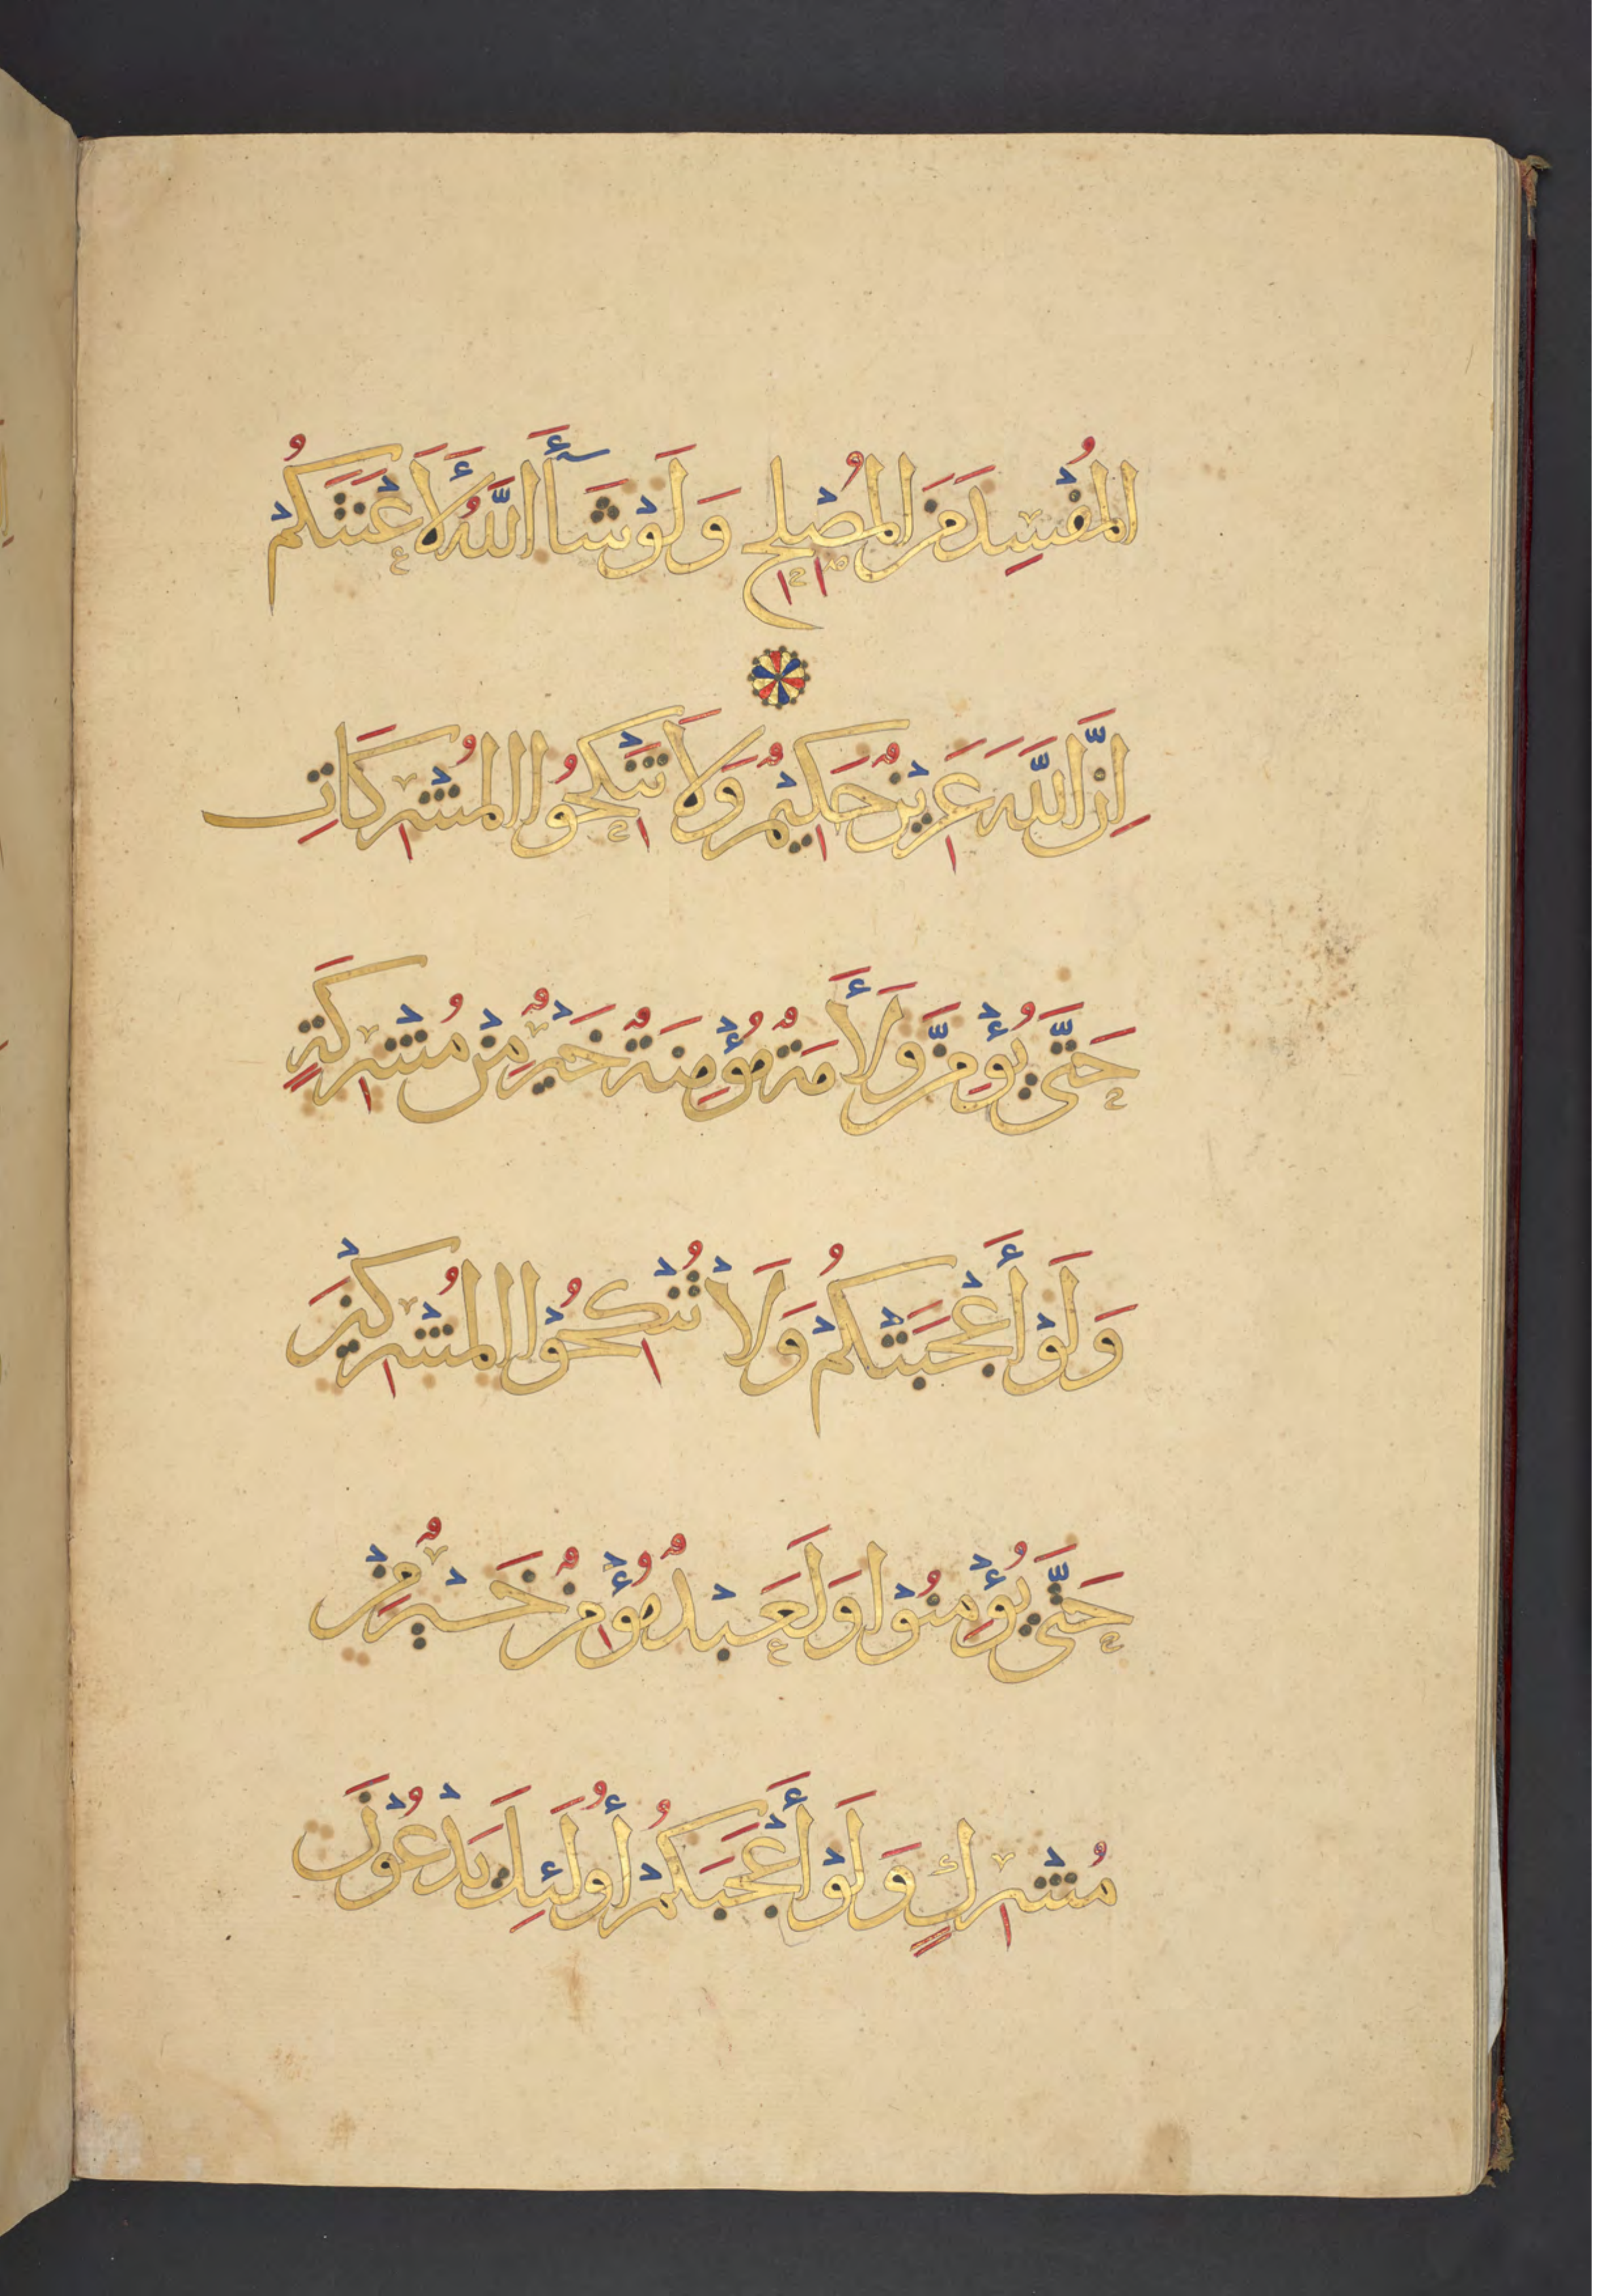 المُفْسِدَ مِنَ المُصْلِحِ وَلَوْ شَآأَ اللَّهُ لَأَعْنَتَكُمْ
اِنَّ اللَّهَ عَزِيْزٌ حَكِيْمٌ وَلَا تَنْكِحُوا المُشْرِكَاتِ
حَتَّى يُؤْمِنَّ وَلَأَمَةٌ مُؤْمِنَةٌ خَيْرٌ مِنْ مُشْرِكَةٍ
وَلَوْ أَعْجَبَتْكُمْ وَلَا تُنْكِحُوْا المُشْرِكِيْنَ
حَتَّى يُؤْمِنُوْا وَلَعَبْدٌ مُؤْمِنٌ خَيْرٌ مِنْ
مُشْرِكٍ وَلَوْ أَعْجَبَكُمْ أُولَئِكَ يَدْعُوْنَ